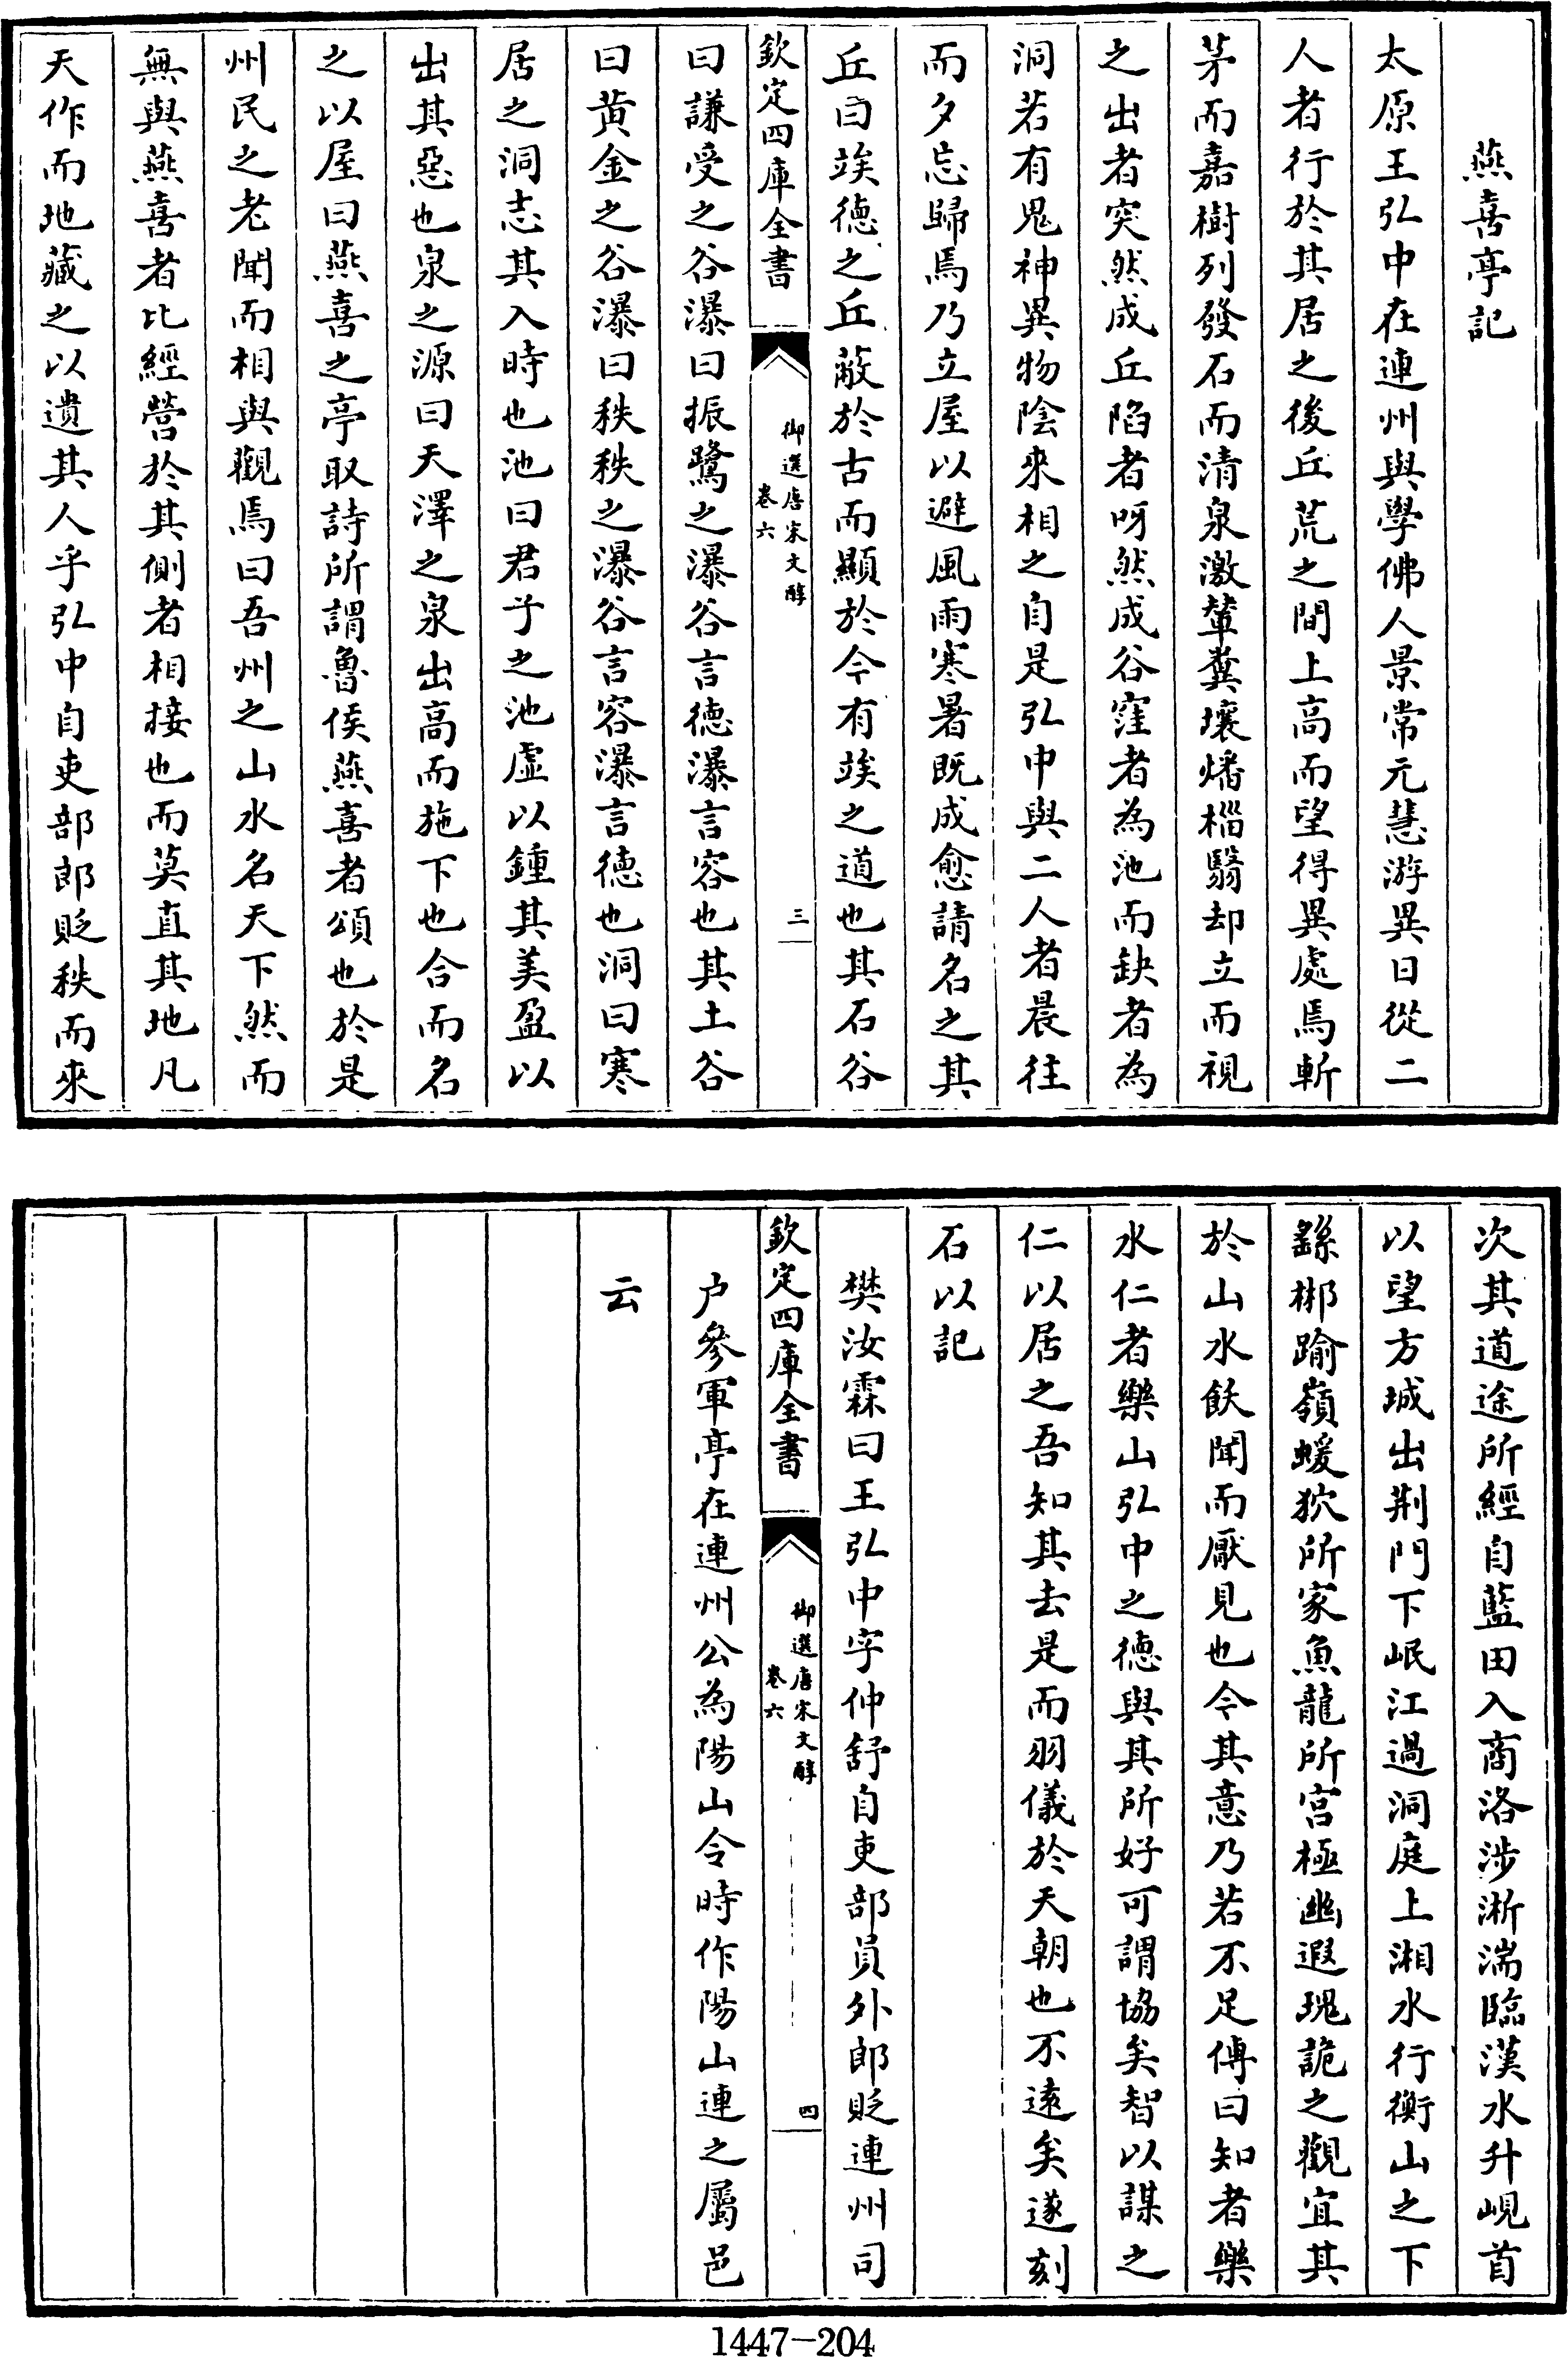 燕喜亭記
太原王弘中在連州與學佛人景常元慧游異日從二
人者行於其居之後丘荒之間上高而望得異處焉斬
茅而嘉樹列發石而清泉激輦糞壤燔椔翳却立而視
之出者突然成丘陷者呀然成谷窪者為池而缺者為
洞若有鬼神異物陰來相之自是弘中與二人者晨往
而夕忘歸焉乃立屋以避風雨寒暑既成愈請名之其
丘曰竢德之丘蔽於古而顯於今有竢之道也其石谷
欽定四庫全書
御選唐宋文醇
卷六
三
曰謙受之谷瀑曰振鷺之瀑谷言德瀑言容也其土谷
曰黄金之谷瀑曰秩秩之瀑谷言容瀑言德也洞曰寒
居之洞志其入時也池曰君子之池虛以鍾其美盈以
出其惡也泉之源曰天澤之泉出高而施下也合而名
之以屋曰燕喜之亭取詩所謂魯侯燕喜者頌也於是
州民之老聞而相與觀焉曰吾州之山水名天下然而
無與燕喜者比經營於其側者相接也而莫直其地凡
天作而地藏之以遺其人乎弘中自吏部郎貶秩而來
次其道途所經自藍田入商洛涉淅湍臨漢水升峴首
以望方城出荆門下岷江過洞庭上湘水行衡山之下
繇郴踰嶺蝯狖所家魚龍所宮極幽遐瑰詭之觀宜其
於山水飫聞而厭見也今其意乃若不足傳曰知者樂
水仁者樂山弘中之德與其所好可謂協矣智以謀之
仁以居之吾知其去是而羽儀於天朝也不遠矣遂刻
石以記
樊汝霖曰王弘中字仲舒自吏部員外郎貶連州司
欽定四庫全書
御選唐宋文醇
卷六
四
户參軍亭在連州公為陽山令時作陽山連之屬邑
云
1447-204